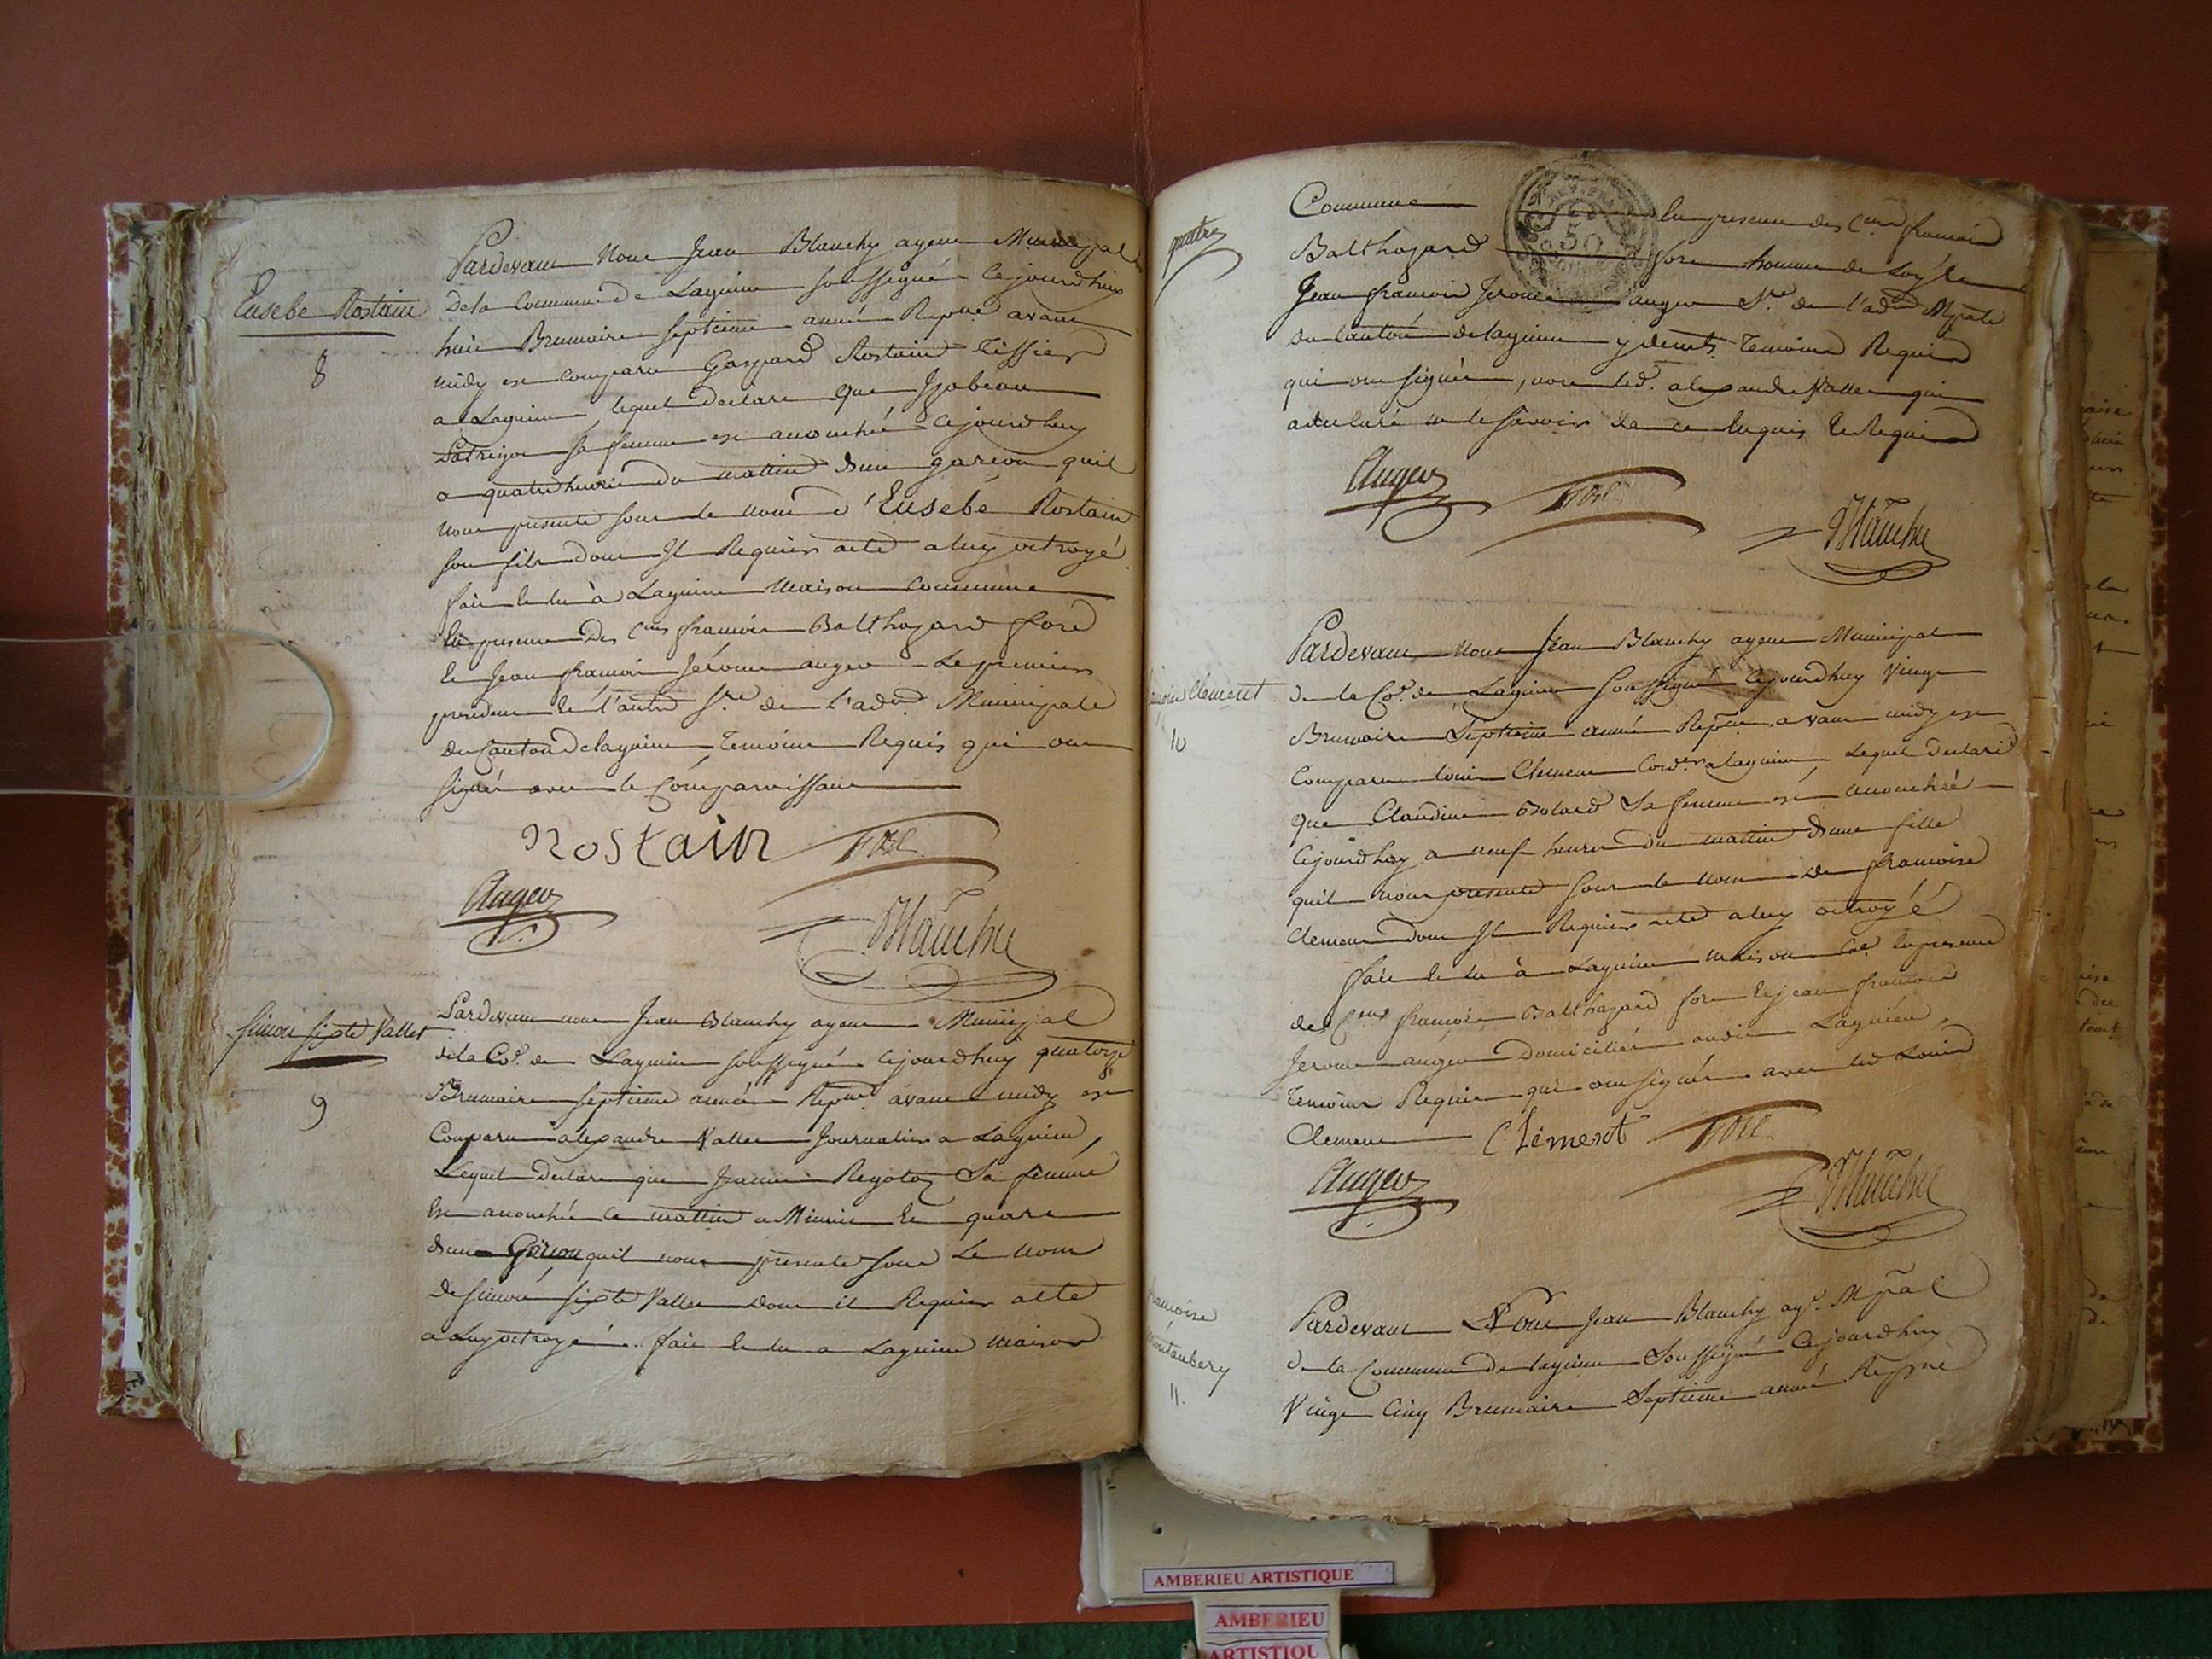 Eusebe Rostain
8
Pardevant Nous Jean Blanchy agent Municipal
De la Commune de Lagnieu soussigné Cejourdhuy
huit Brumaire septieme année Repne avant
midy est Comparu Gaspard Rostaind Tissier
a Lagnieu lequel declare que Izabeau
sa femme est accouchée Cejourdhuy
a quatre heures du mattin d'un garcon quil
nous presente sous le nom d'Eusebé Rostain
son fils dont Il Requier acte a luy octroyé
fait et lu à Lagnieu Maison Commune
En presence Des Cens francois Balthazard foré
et Jean francois Jérome auger Le premier
president et l'autre Sre de L'adon Municipale
du Canton de lagnieu Temoins Requis qui ont
signés avec le Comparoissant
Rostain fore
Auger
Blanchy
Simon sixte Vallet
9
Pardevant nous Jean Blanchy agent Municipal
de la Coe de Lagnieu soussigné Cejourdhuy quatorze
Brumaire septieme année Repne avant midy est
Comparu alexandre Vallet Journalier a Lagnieu,
Lequel Declare que Jeanne Sa femme
Est accouchée ce mattin a Minuit et quart
d'un Garcon quil nous presente sous Le nom
de simon sixte Vallet dont il Requier acte
a Luy octroyé. fait et lu a Lagnieu maison
quatre
Commune En presence des Cens francois
50
Balthazard fore homme de Loy et
Jean francois Jerome auger Sre de l'adon Mpale
du Canton de lagnieu y demts Temoins Requis
qui ont signés, non led. alexandre Vallet qui
a declaré ne le savoir de ce Enquis et Requis
Auger fore
Blanchy
Clement
10
Pardevant nous Jean Blanchy agent Municipal
de la Coe de Lagnieu soussigné Cejourdhuy Vingt
Brumaire Septieme année Repne avant midy est
Comparu louis Clement Cordr a lagnieu, Lequel declare
que Claudine Sa femme est accouchée
Cejourdhuy a neuf heures du mattin d'une fille
quil nous presente sous le nom de francoise
Clement dont Il Requier acte a luy octroyé
fait et lu à Lagnieu maison Coe En presence
des Cens francois Balthazard fore et jean francois
Jerome auger Domiciliés audit Lagnieu,
Temoins Requis qui ont signés avec led Louis
Clement Clement fore
Auger
Blanchy
11.
Pardevant Nous Jean Blanchy agt Mpal
de la Commune De lagnieu Soussigné Cejourdhuy
Vingt Cinq Brumaire Septieme année Repne
AMBERIEU ARTISTIQUE
AMBERIEU